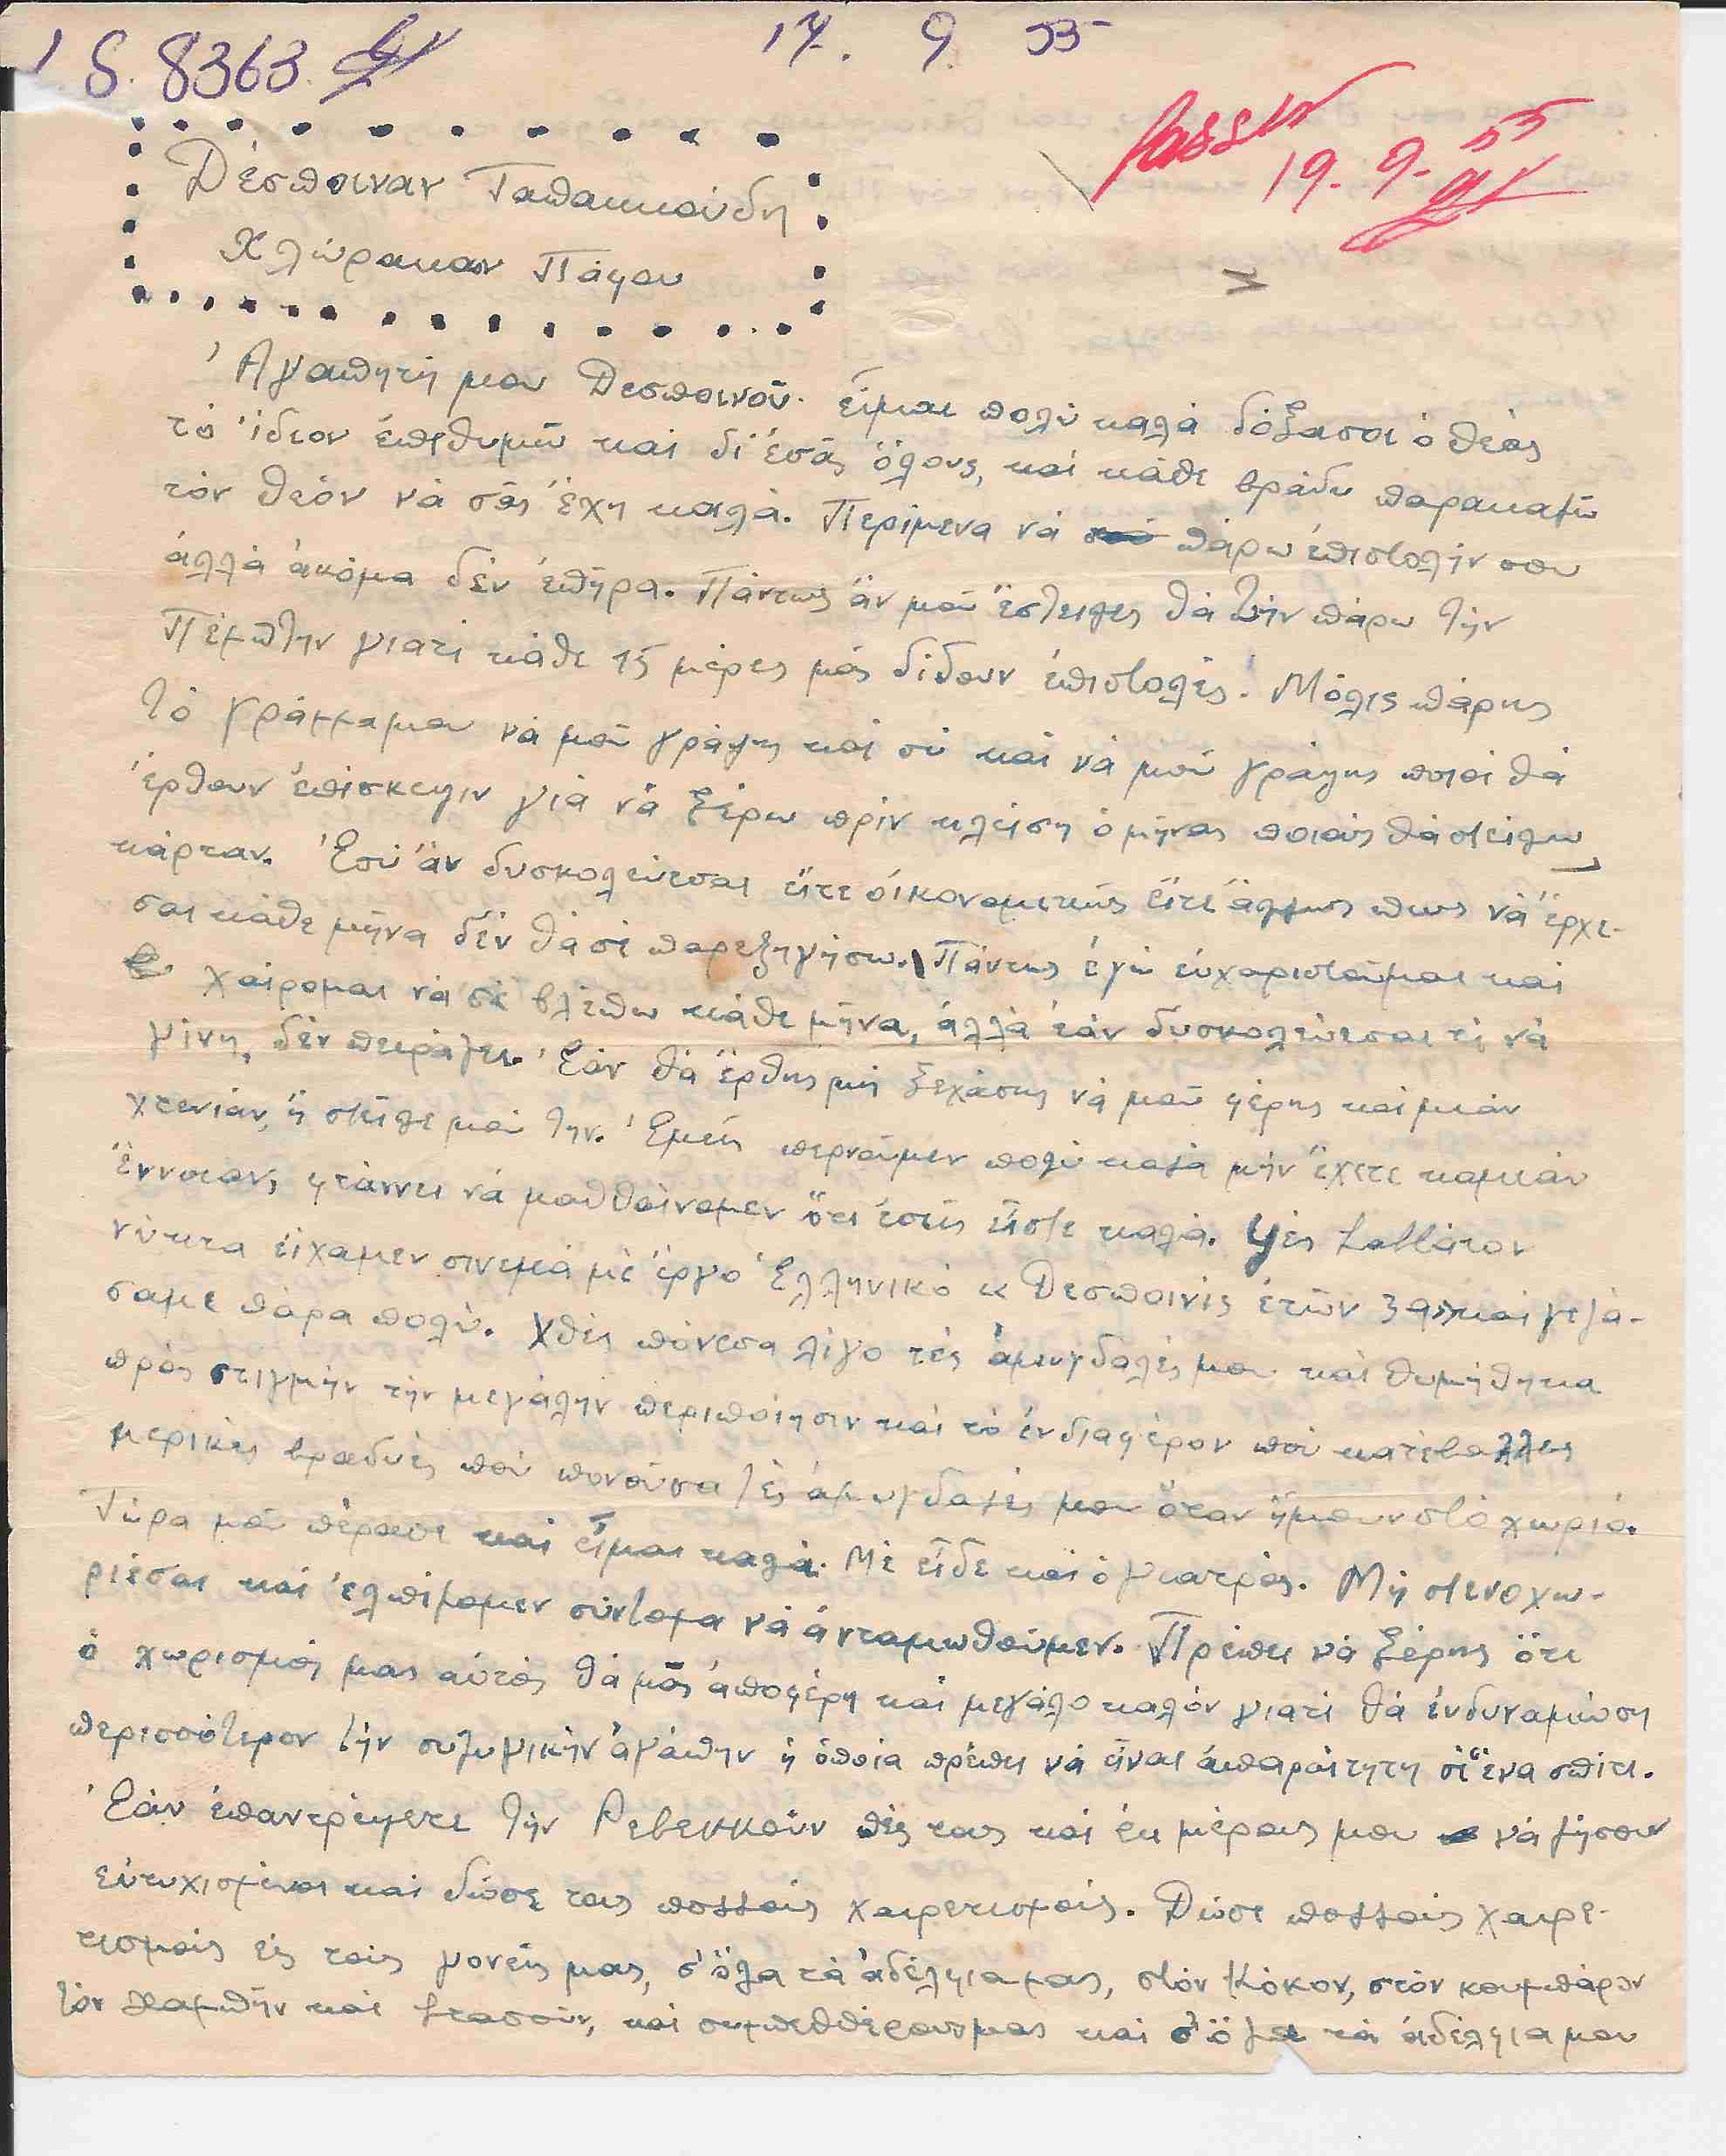 S. 8363.
17. 9. 55
Passed
19. 9. 55
Δέσποιναν Ταπακκούδη
Χλώρακαν Πάφου
Ἀγαπητή μου Δεσποινοῦ. εἶμαι πολύ καλά δόξασοι ὁ θεός
τό ἴδιον ἐπιθυμῶ καί δι' ἐσᾶς ὅλους, καί κάθε βράδυ παρακαλῶ
τόν θεόν νά σᾶς ἔχη καλά. Περίμενα νά πάρω ἐπιστολήν σου
ἀλλά ἀκόμα δέν ἐπῆρα. Πάντως ἄν μοῦ ἔστειλες θά τήν πάρω τήν
Πέμπτην γιατί κάθε 15 μέρες μᾶς δίδουν ἐπιστολές. Μόλις πάρης
τό γράμμα μου νά μοῦ γράψης καί σύ καί νά μοῦ γράψης ποιοί θά
ἔρθουν ἐπίσκεψιν γιά νά ξέρω πρίν κλείση ὁ μήνας ποιούς θά στείλω
κάρταν. Ἐσύ ἄν δυσκολεύεσαι εἴτε οἰκονομικῶς εἴτε ἄλλως πως νά ἔρχε-
σαι κάθε μήνα δέν θά σέ παρεξηγήσω. Πάντως ἐγώ εὐχαριστοῦμαι καί
χαίρομαι νά σέ βλέπω κάθε μήνα, ἀλλά ἐάν δυσκολεύεσαι τί νά
γίνη, δέν πειράζει. Ἐάν θά ἔρθης μή ξεχάσης νά μοῦ φέρης καί μιάν
χτενιάν, ἤ στεῖλε μοῦ την. Ἐμεῖς περνοῦμεν πολύ καλά μήν ἔχετε καμιάν
ἔννοιαν, φτάννει νά μαθθαίνομεν ὅτι ἐσεῖς εἶστε καλά. Ψές Σαββάτον
νύκτα εἴχαμεν σινεμά μέ ἔργο Ἑλληνικό «Δεσποινίς ἐτῶν 39» καί γελά-
σαμε πάρα πολύ. Χθές πόνεσα λίγο τές ἀμυγδαλές μου καί θυμήθηκα
πρός στιγμήν τήν μεγάλην περιποίησιν καί τό ἐνδιαφέρον πού κατέβαλλες
μερικές βραδυές πού πονοῦσα τές ἀμυγδαλές μου ὅταν ἤμουν στό χωριό.
Τώρα μοῦ πέρασε καί εἶμαι καλά. Μέ εἶδε καί ὁ γιατρός. Μή στενοχω-
ριέσαι καί ἐλπίζομεν σύντομα νά ἀνταμωθοῦμεν. Πρέπει νά ξέρης ὅτι
ὁ χωρισμός μας αὐτός θά μᾶς ἀποφέρη καί μεγάλο καλόν γιατί θά ἐνδυναμώση
περισσότερον τήν συζυγικήν ἀγάπην ἡ ὁποία πρέπει νά εἶναι ἀπαραίτητη σ' ἕνα σπίτι.
Ἐάν ἐπαντρέψετε τήν Ρεβεκκοῦν πές τους καί ἐκ μέρους μου νά ζήσουν
εὐτυχισμένοι καί δῶσε τους πολλούς χαιρετισμούς. Δῶσε πολλούς χαιρε-
τισμούς εἰς τούς γονεῖς μας, σ' ὅλα τά ἀδέλφια μας, στόν Κόκον, στόν κουμπάρον
τόν Χαμπῆν καί Στασοῦν, καί συμπεθθέρους μας καί σ' ὅλα τά ἀδέλφια μου